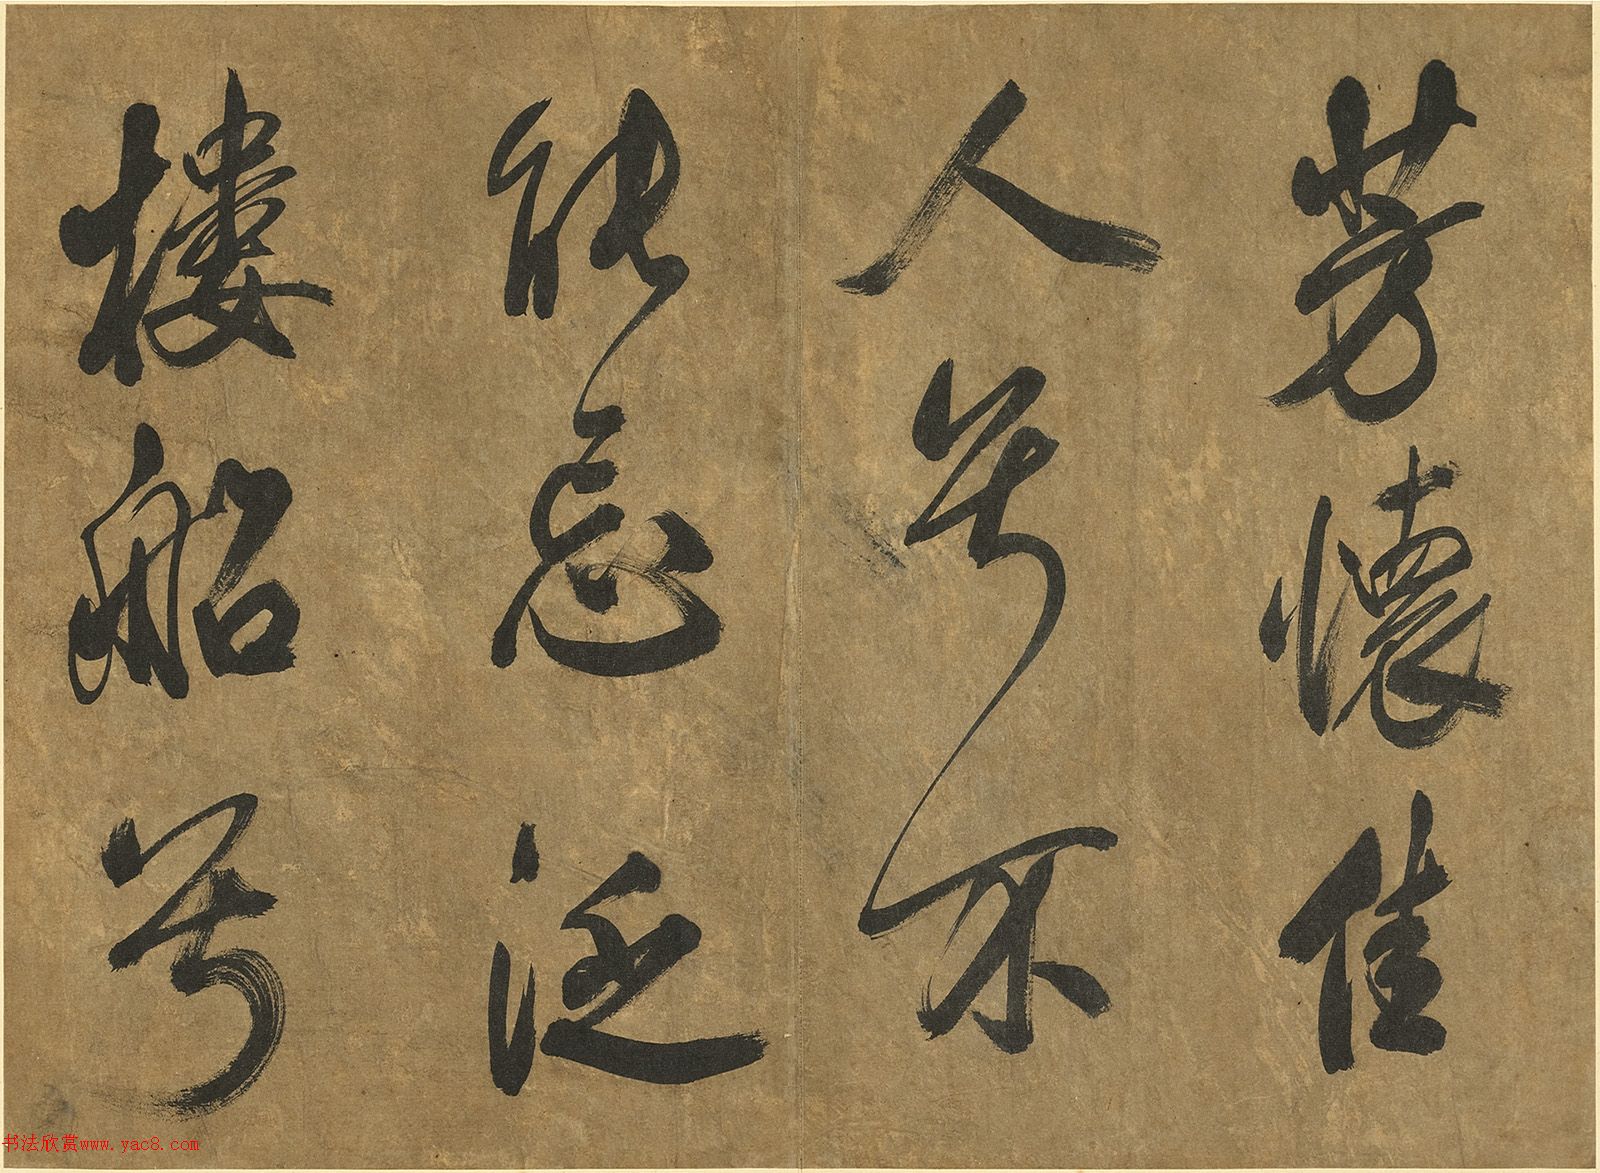 芳懷佳
人兮不
能忘泛
樓船兮
书法欣赏www.yac8.com